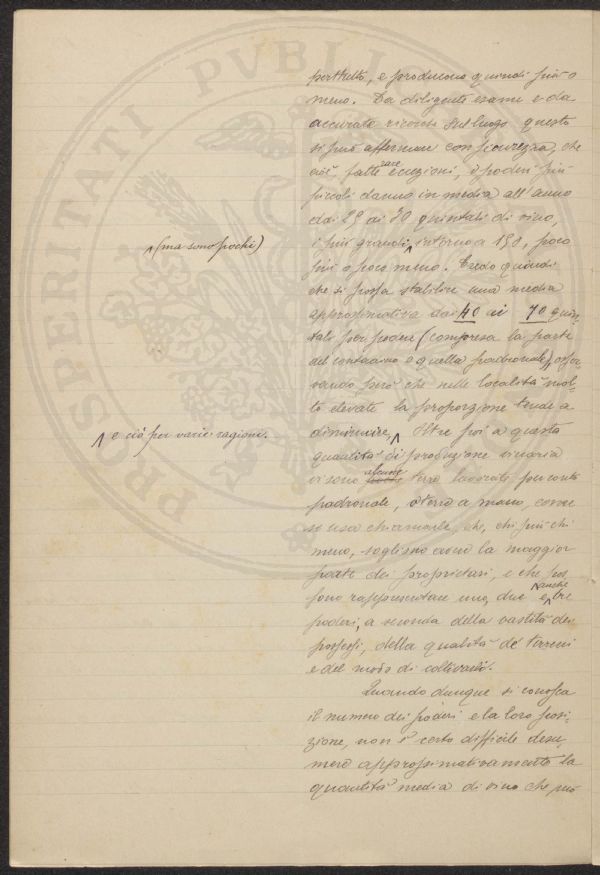 PROSPERITATI PVBLICAE
perttutto, e producono quindi più o
meno. Da diligente esame e da
accurate ricerche sul luogo questo
si può affermare con sicurezza, che
cioè, fatte rare eccezioni, i poderi più
piccoli danno in media all'anno
dai 25 ai 30 quintali di vino,
(ma sono pochi)
i più grandi, intorno a 150, poco
più o poco meno. Credo quindi
che si possa stabilire una media
approssimativa dai 40 ai 70 quin-
tali per podere (compresa la parte
del contadino e quella padronale), osser-
vando però che nelle località mol-
to elevate la proporzione tende a
e ciò per varie ragioni.
diminuire. Oltre poi a questa
quantità di produzione vinaria
vi sono alcune terre lavorate per conto
padronale, o terre a mano, come
si usa chiamarle, che, chi più chi
meno, sogliono avere la maggior
parte dei proprietari, e che pos-
sono rappresentare uno, due e anche tre
poderi, a seconda della vastità dei
possessi, della qualità de' terreni
e del modo di coltivarli.
Quando dunque si conosca
il numero dei poderi e la loro posi-
zione, non è certo difficile desu-
mere approssimativamente la
quantità media di vino che può